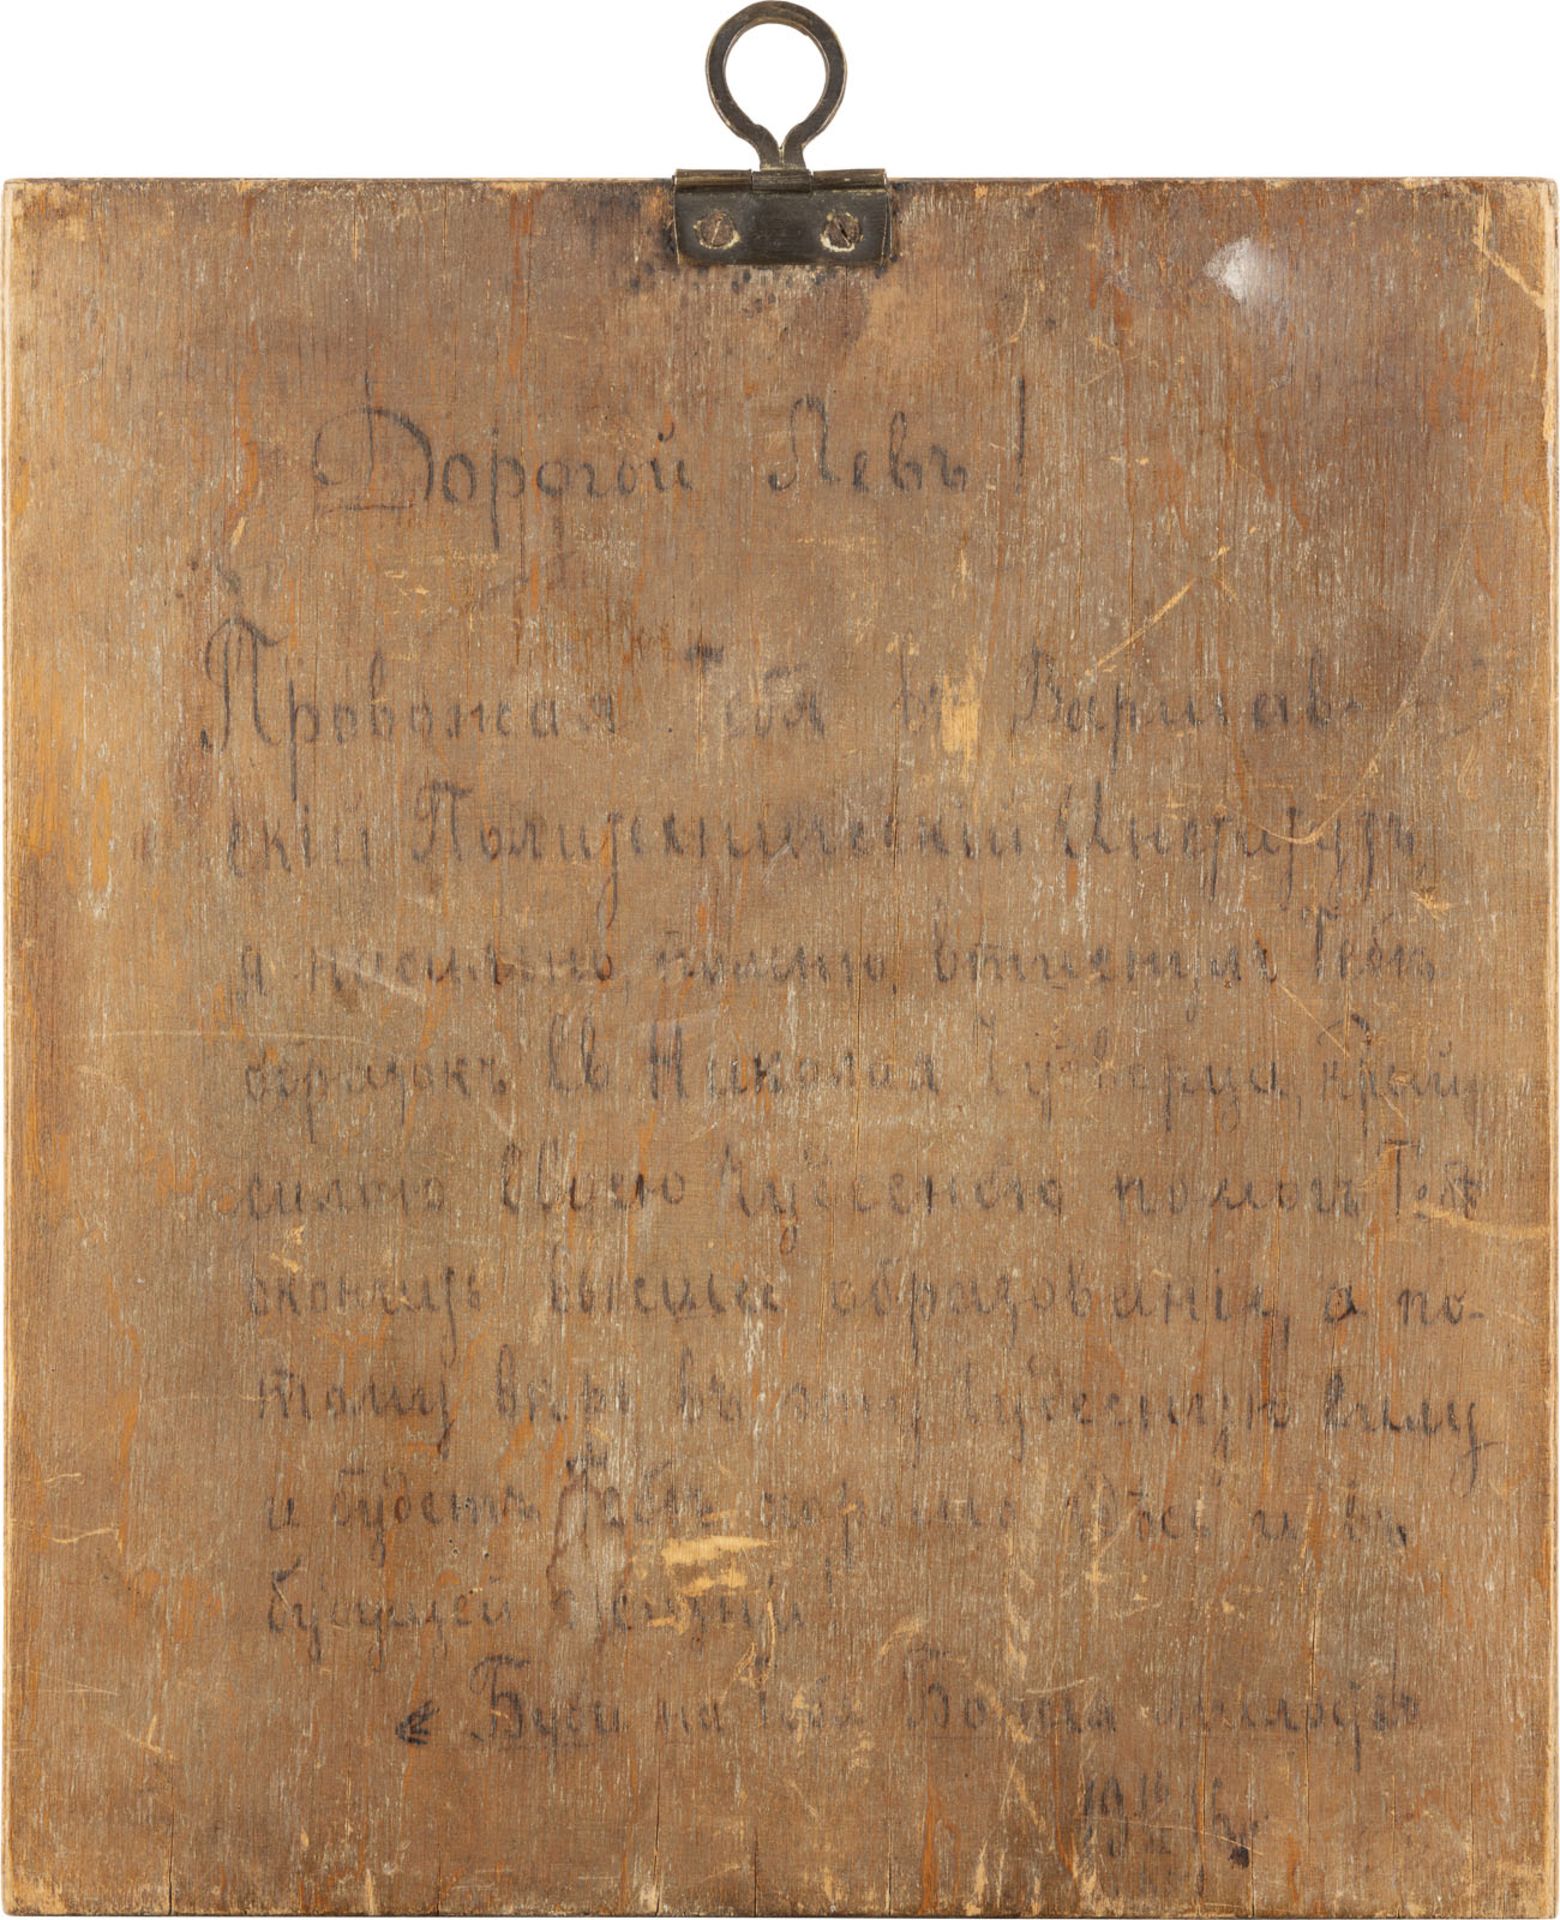 Дорогой Левъ!
Провожая Тебя въ Варшав-
скій Политехническій Институтъ
я насильно,
образокъ Св Николая Чудотворца,
силою Своею Чудесною помогъ Тебѣ
окончить высшее образованіе, а по-
тому вѣрь въ эту чудесную силу
и будетъ Тебѣ хорошо здѣсь и въ
будущей жизни
Буди на Тебѣ Божья милость